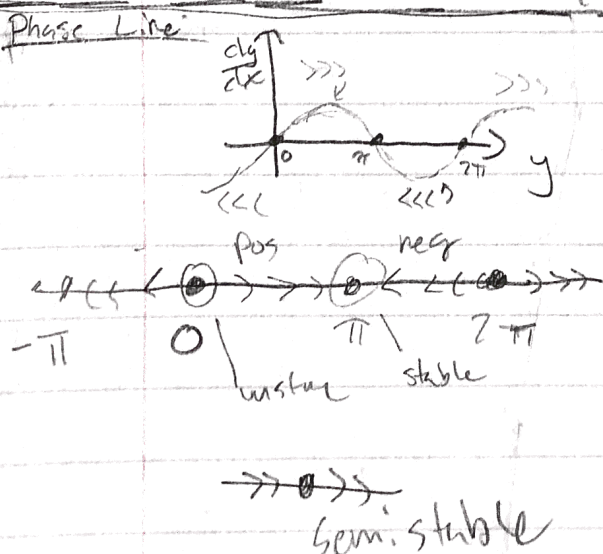 Phase Line
dy
dx
>>>
>>>
0
π
2π
y
<<<
<<<
pos
neg
-π
0
π
2π
stable
semistable